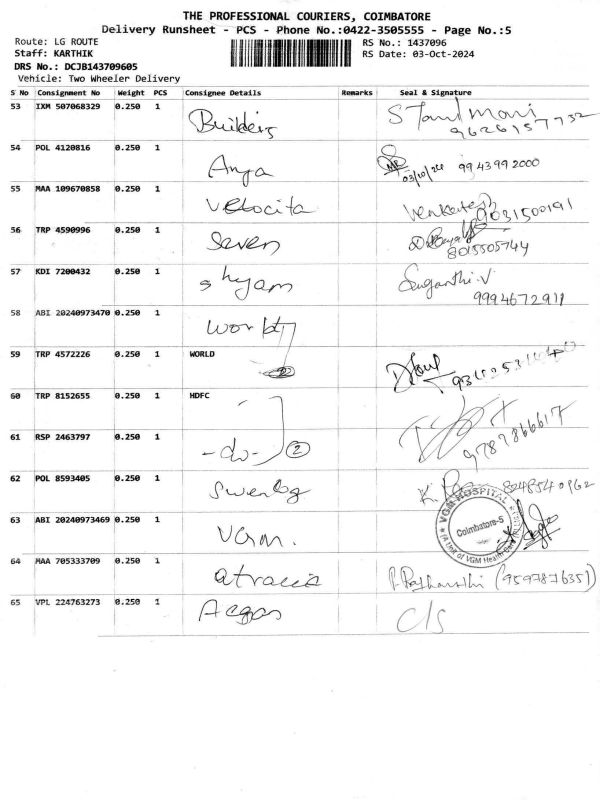 THE PROFESSIONAL COURIERS, COIMBATORE
Delivery Runsheet - PCS - Phone No.:0422-3505555 - Page No.:5
Route: LG ROUTE
RS No.: 1437096
Staff: KARTHIK
RS Date: 03-Oct-2024
DRS No.: DCJB143709605
Vehicle: Two Wheeler Delivery
S No Consignment No Weight PCS Consignee Details Remarks Seal & Signature
53 IXM 507068329 0.250 1 Builders 9626157732
54 POL 4120816 0.250 1 Anya 03/10/24 9943992000
55 MAA 109670858 0.250 1 Velocita Venkatesh 9031500191
56 TRP 4590996 0.250 1 Seven 8015505744
57 KDI 7200432 0.250 1 Shyam Suganthi.V 9994672911
58 ABI 20240973470 0.250 1 World
59 TRP 4572226 0.250 1 WORLD
60 TRP 8152655 0.250 1 HDFC
61 RSP 2463797 0.250 1 -do- 2 9787866617
62 POL 8593405 0.250 1 8248540962
63 ABI 20240973469 0.250 1 VGM. VGM HOSPITAL Coimbatore-5
64 MAA 705333709 0.250 1 (9597871635)
65 VPL 224763273 0.250 1 Aegas c/s